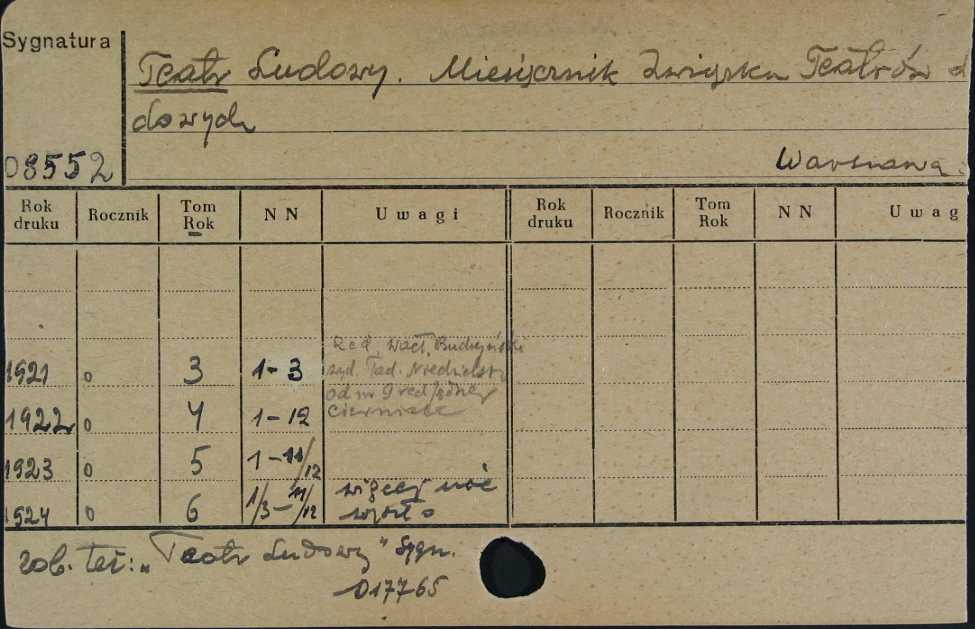 Sygnatura
Teatr Ludowy. Miesięcznik Związku Teatrów
dowych
08552
Warszawa.
Rok druku Rocznik Tom Rok NN Uwagi Rok druku Rocznik Tom Rok NN Uwag
Red. Wacł. Budzyński
1921 0 3 1-3 Tad.
od nr 9 red. Jędrzej
1922 0 4 1-12 Cierniak
1923 0 5 1-11/12
więcej nie
1924 0 6 1/3-11/12 wyszło
zob. też: „Teatr Ludowy" Sygn.
017765